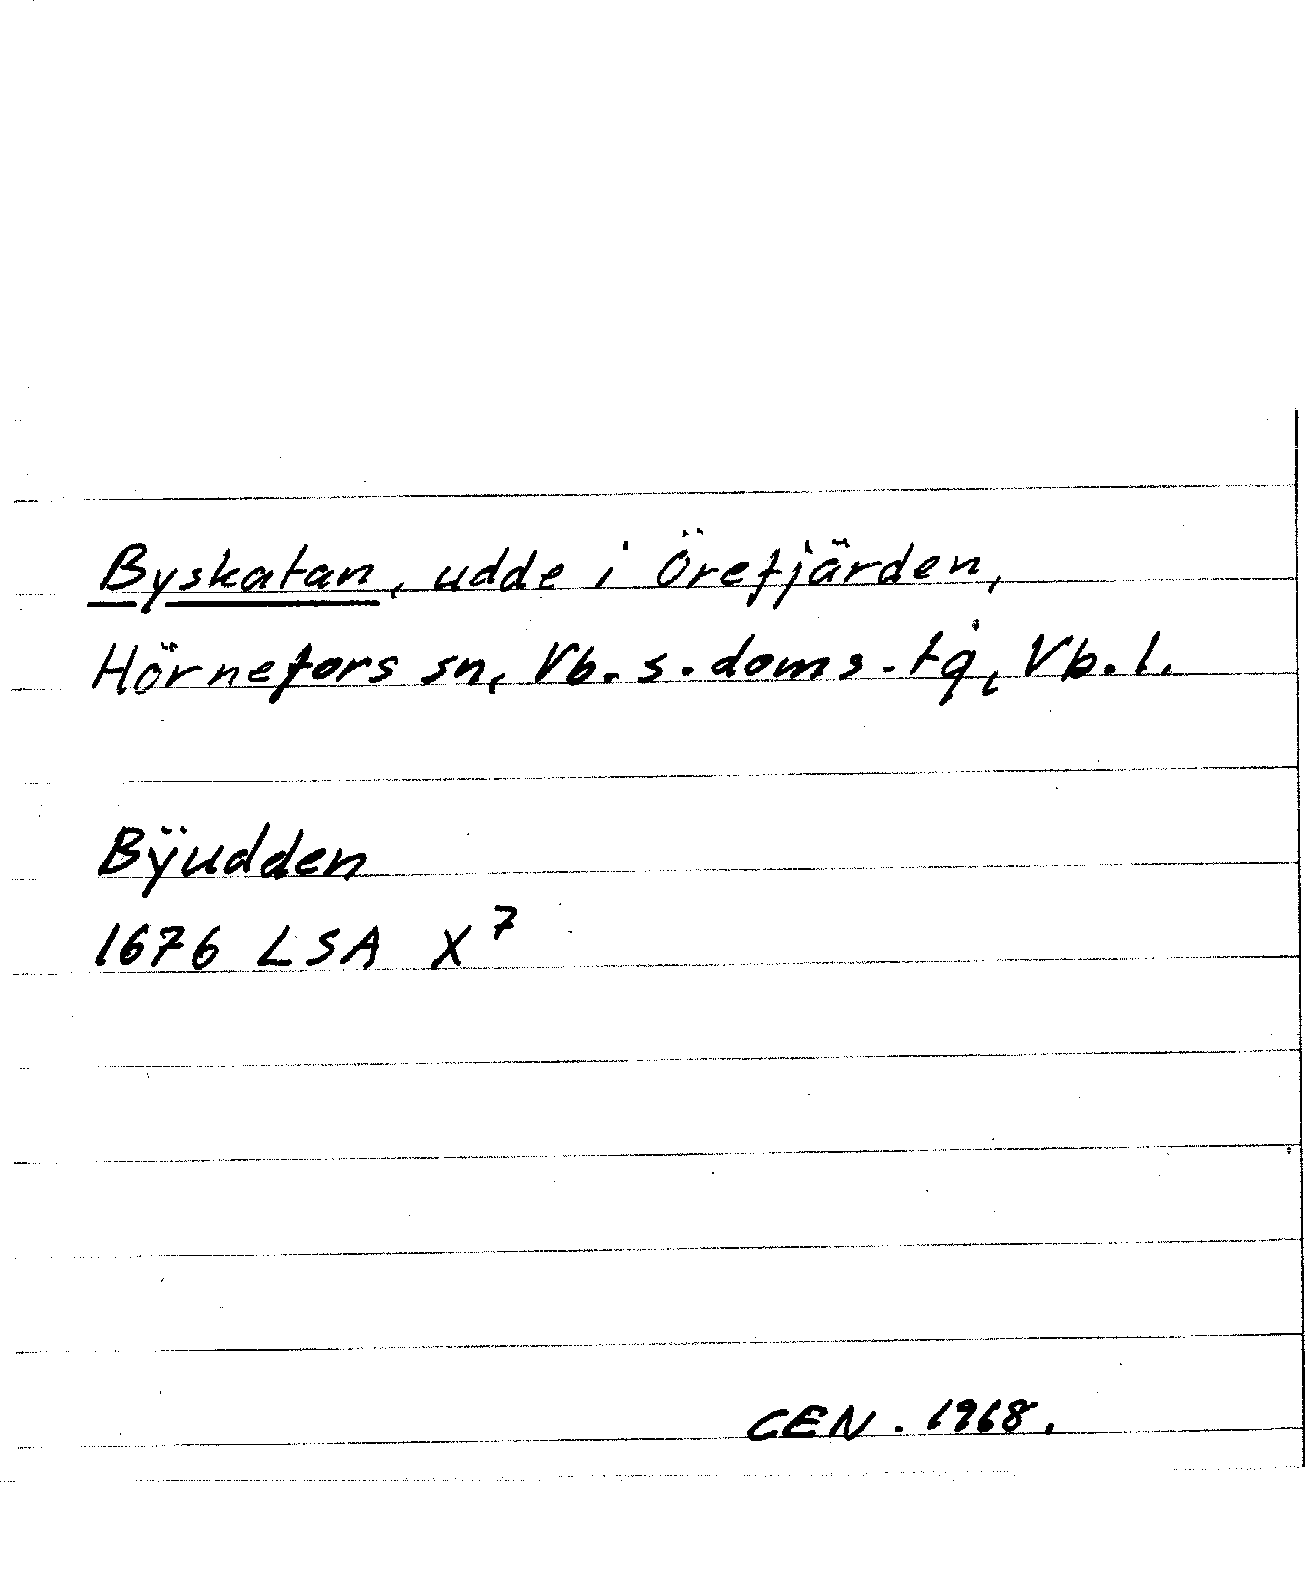 Byskatan, udde i Örefjärden,
Hörnefors sn, Vb. s. doms. tg, Vb. l.
Bÿudden
1676 LSA X⁷
CEN. 1968.